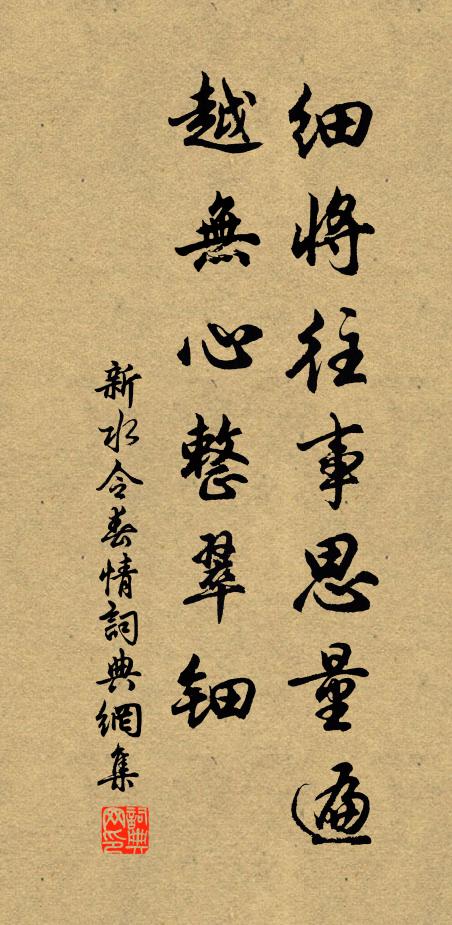 細將往事思量遍
越無心整翠鈿
新水令春情詞典網集
詞典网印